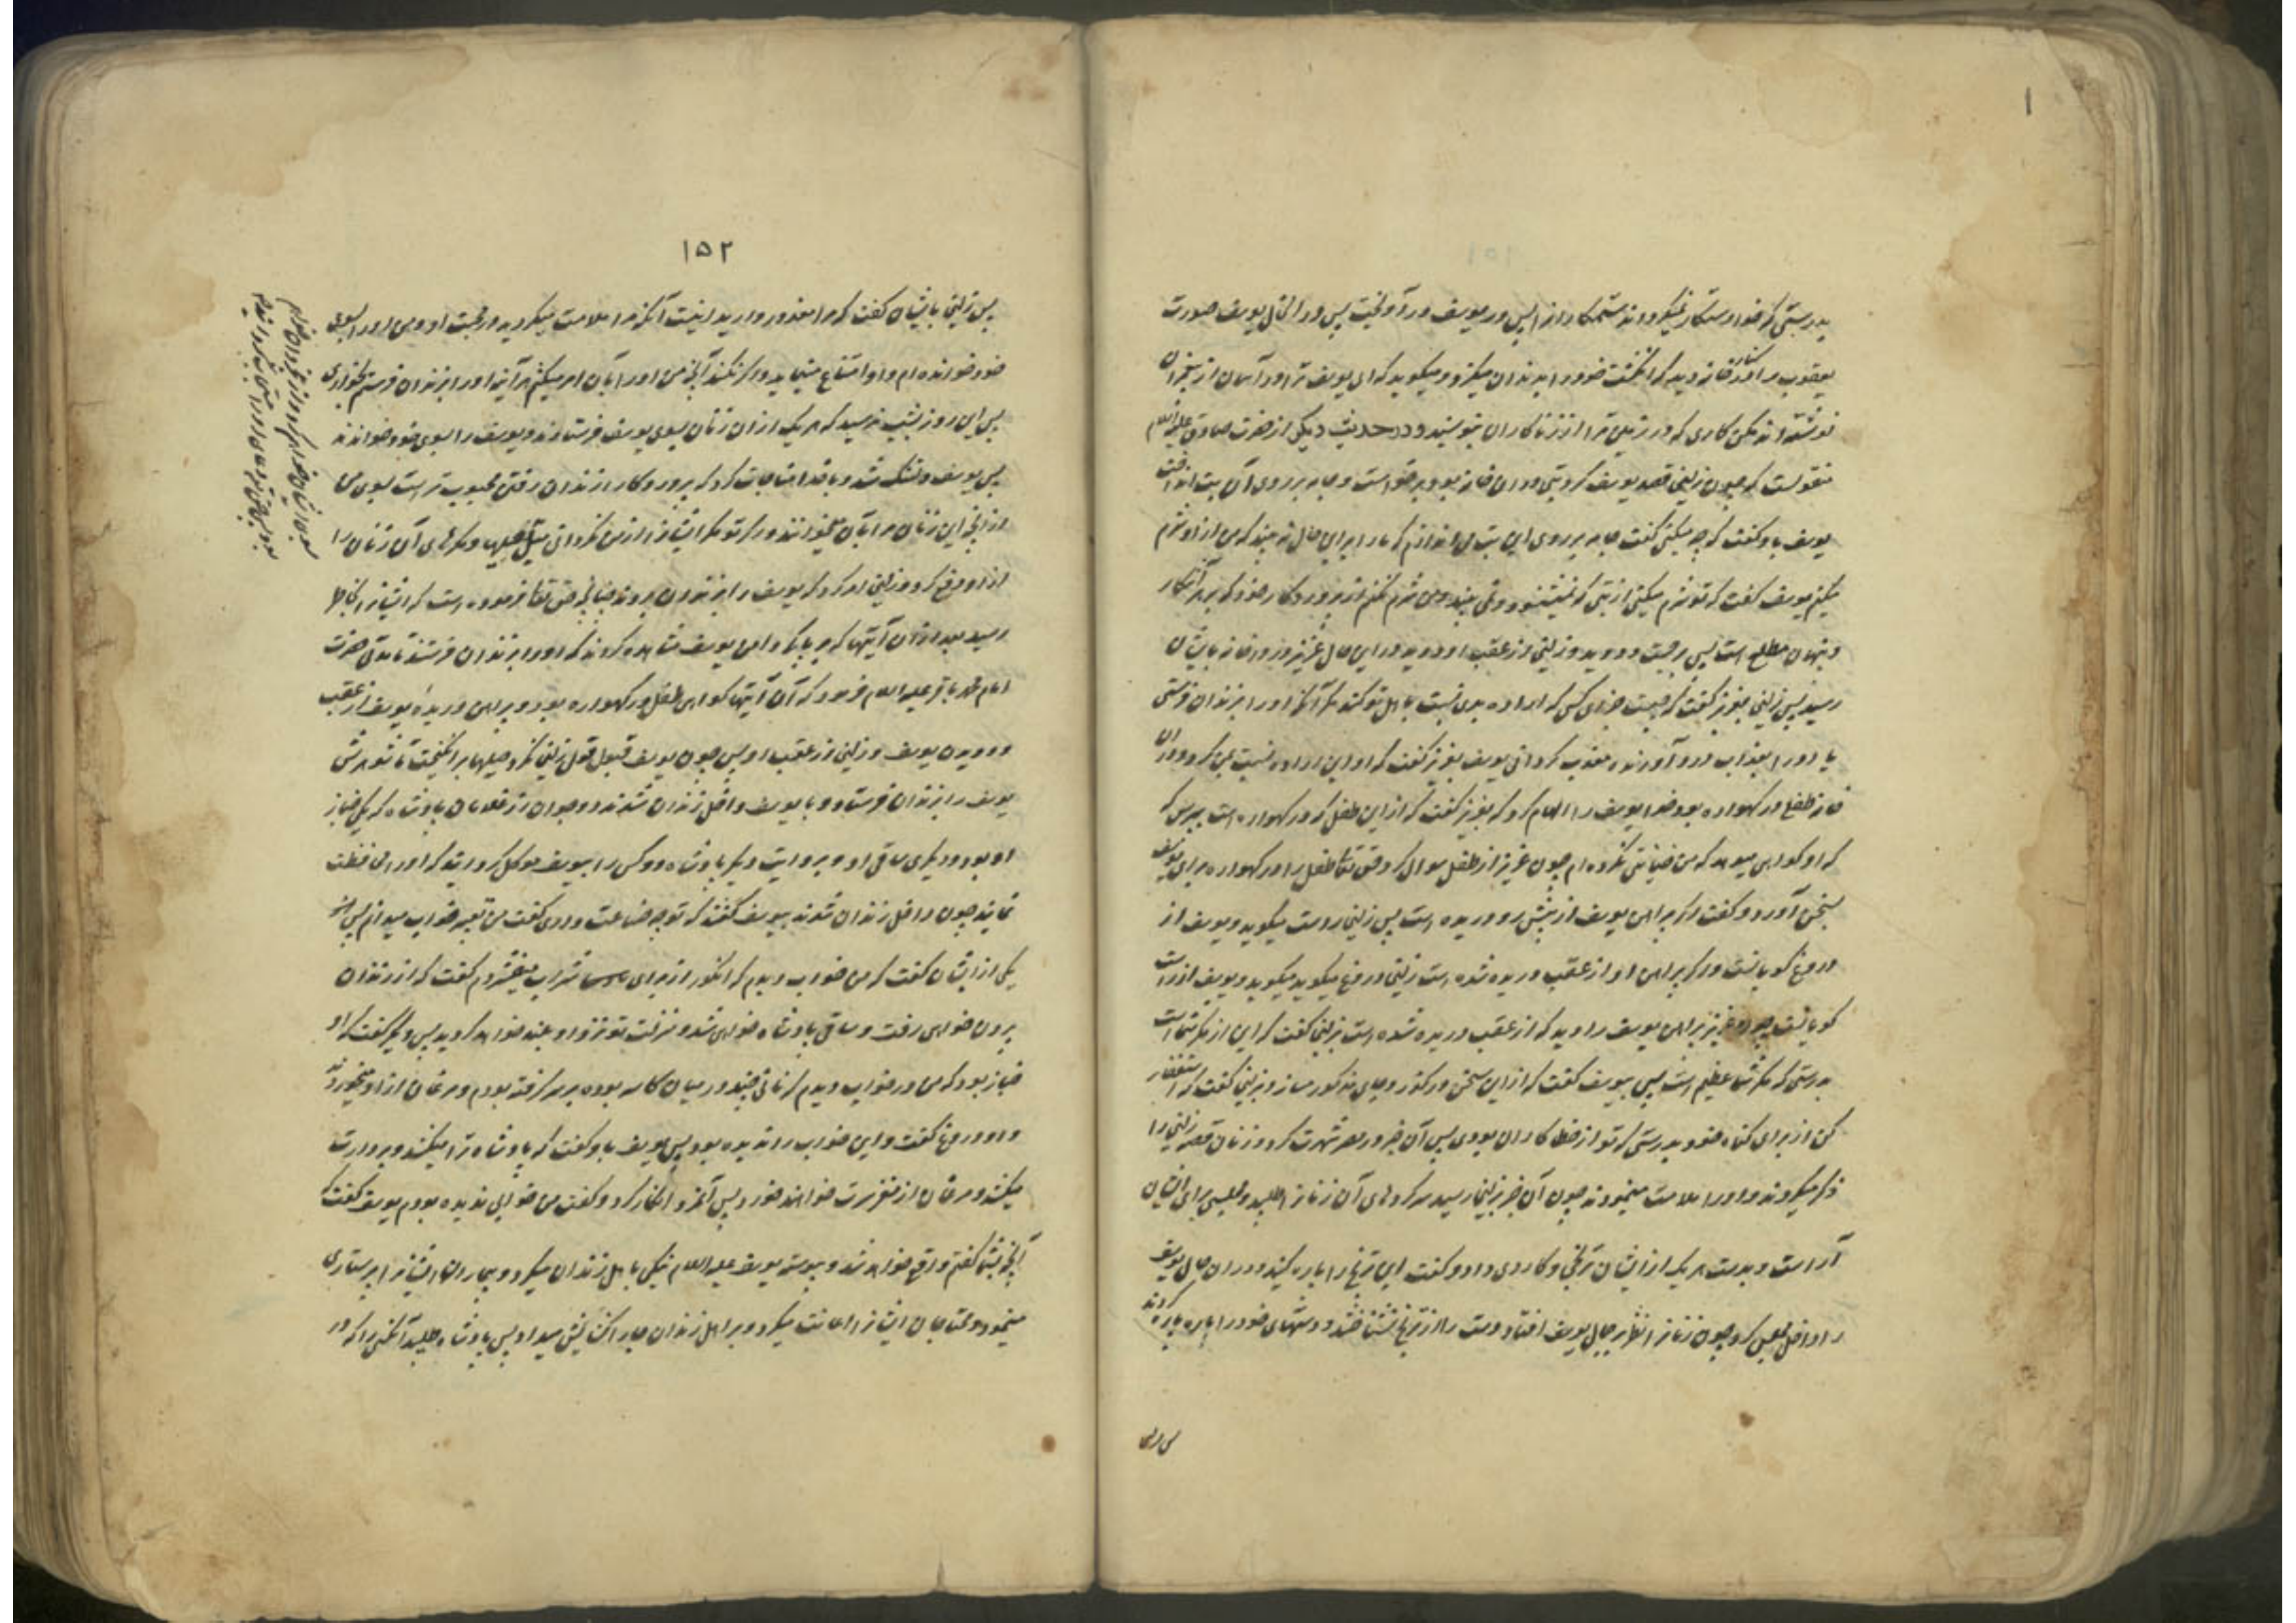 بدرستی که خدا رستگار نمیگرداند ستمکاران را پس در یوسف درآویخت پس در آنحال یوسف صورت
یعقوب را در کنار خانه دید که انگشت خود را بدندان میگزد و میگوید که ای یوسف ترا در آسمان از پیغمبران
نوشته‌اند مکن کاری که در زمین ترا از زناکاران بنویسند و در حدیث دیگر از حضرت صادق علیه السلام
منقولست که چون زلیخا قصد یوسف کرد بتی در آن خانه بود برخواست و جامه بر روی آن بت انداخت
یوسف باو گفت که چه میکنی گفت جامه بر روی این بت می اندازم که ما را براین حال نه بیند که من از او شرم
میکنم یوسف گفت که تو شرم میکنی از بتی که نمیشنود و نمی بیند و من شرم نکنم از پروردگار خود که بر آشکار
و پنهان مطلع است پس برجست و دوید و زلیخا از عقب او دوید در این حال عزیز در در خانه بایشان
رسید پس زلیخا بعزیز گفت که چیست جزای کسی که اراده بدی نسبت باهل تو کند مگر آنکه او را بزندان فرستی
یا او را بعذاب درد آورنده معذب گردانی یوسف بعزیز گفت که او این اراده نسبت بمن کرد و در آن
خانه طفلی در گهواره بود خدا یوسف را الهام کرد که بعزیز گفت که از این طفل که در گهواره است بپرس که
که او گواهی میدهد که من خیانتی نکرده‌ام چون عزیز از طفل سوال کرد حق تعالی طفل را در گهواره برای یوسف
بسخن آورد و گفت اگر پیراهن یوسف از پیش رو دریده است پس زلیخا راست میگوید و یوسف از
دروغ گویانست و اگر پیراهن او از عقب دریده شده است زلیخا دروغ میگوید میگوید و یوسف از راست
گویانست چون عزیز پیراهن یوسف را دید که از عقب دریده شده است بزلیخا گفت که این از مکر شماست
بدرستی که مکر شما عظیم است پس بیوسف گفت که از این سخن درگذر و جای مذکور مساز و بزلیخا گفت که استغفار
کن از برای گناه خود بدرستی که تو از خطاکاران بودی پس آن خبر در مصر شهرت کرد و زنان قصه زلیخا را
ذکر میکردند و او را ملامت مینمودند چون آن خبر بزلیخا رسید سرکرده‌های آن زنان را طلبید و مجلسی برای ایشان
آراست و بدست هر یک از ایشان ترنجی و کاردی داد و گفت این ترنج را پاره کنید و در آن حال یوسف
را داخل مجلس کرد چون زنان را نظر بر جمال یوسف افتاد دست را از ترنج نشناختند و دستهای خود را پاره پاره کردند
۱۵۲
پس زلیخا بایشان گفت که مرا معذور دارید اینست آنکه مرا ملامت میکردید در محبت او و من او را بسوی
خود خوانده‌ام و او امتناع مینماید و اگر نکند آنچه من او را بآن امر میکنم هرآینه او را بزندان فرستم بخواری
پس این روز بشب نرسید که هر یک از آن زنان بسوی یوسف فرستادند و یوسف را بسوی خود خواندند
پس یوسف دلتنگ شد و با خدا مناجات کرد که پروردگارا زندان رفتن محبوب تر است بسوی من
از آنچه این زنان مرا بآن میخوانند و اگر تو مکر ایشان را از من نگردانی میل پس حق تعالی حیله‌ها و مکرهای آن زنان را
از او دفع کرد و زلیخا امر کرد که یوسف را بزندان بردند چنانچه حق تعالی فرموده است که ایشان را بخاطر
رسید بعد از آن آیتها که بر پاکی دامن یوسف مشاهده کردند که او را بزندان فرستند تا مدتی حضرت
امام محمد باقر علیه السلام فرمود که آن آیتها گواهی طفل در گهواره بود و پیراهن دریدهٔ یوسف از عقب
و دویدن یوسف و زلیخا از عقب او پس چون یوسف قبول قول زلیخا نکرد حیله‌ها برانگیخت تا شوهرش
یوسف را بزندان فرستاد و با یوسف داخل زندان شدند دو جوان از غلامان پادشاه که یکی خباز
او بود و دیگری ساقی او و بروایت دیگر پادشاه دو کس را بیوسف موکل گردانید که او را محافظت
نمایند چون داخل زندان شدند بیوسف گفتند که تو چه صناعت داری گفت من تعبیر خواب میدانم پس
یکی از ایشان گفت که من خواب دیدم که انگور از برای شراب میفشردم گفت که از زندان
بیرون خواهی رفت و ساقی پادشاه خواهی شد و منزلت تو نزد او بلند خواهد گردید پس دیگر گفت که او
خباز بود که من در خواب دیدم که نانی چند در میان کاسه بوده بر سر گرفته بودم و مرغان از او میخوردند
و او دروغ گفت و این خواب را ندیده بود پس یوسف باو گفت که پادشاه ترا میکشد و بر دارت
میکشد و مرغان از مغز سرت خواهند خورد پس آنمرد انکار کرد و گفت من خوابی ندیده بودم یوسف گفت که
آنچه بشما گفتم واقع خواهد شد و پیوسته یوسف علیه السلام نیکی باهل زندان میکرد و بیماران ایشان را پرستاری
مینمود و محتاجان ایشان را اعانت میکرد و بر اهل زندان جا را گشایش میداد پس پادشاه طلبید آنکسی را که در